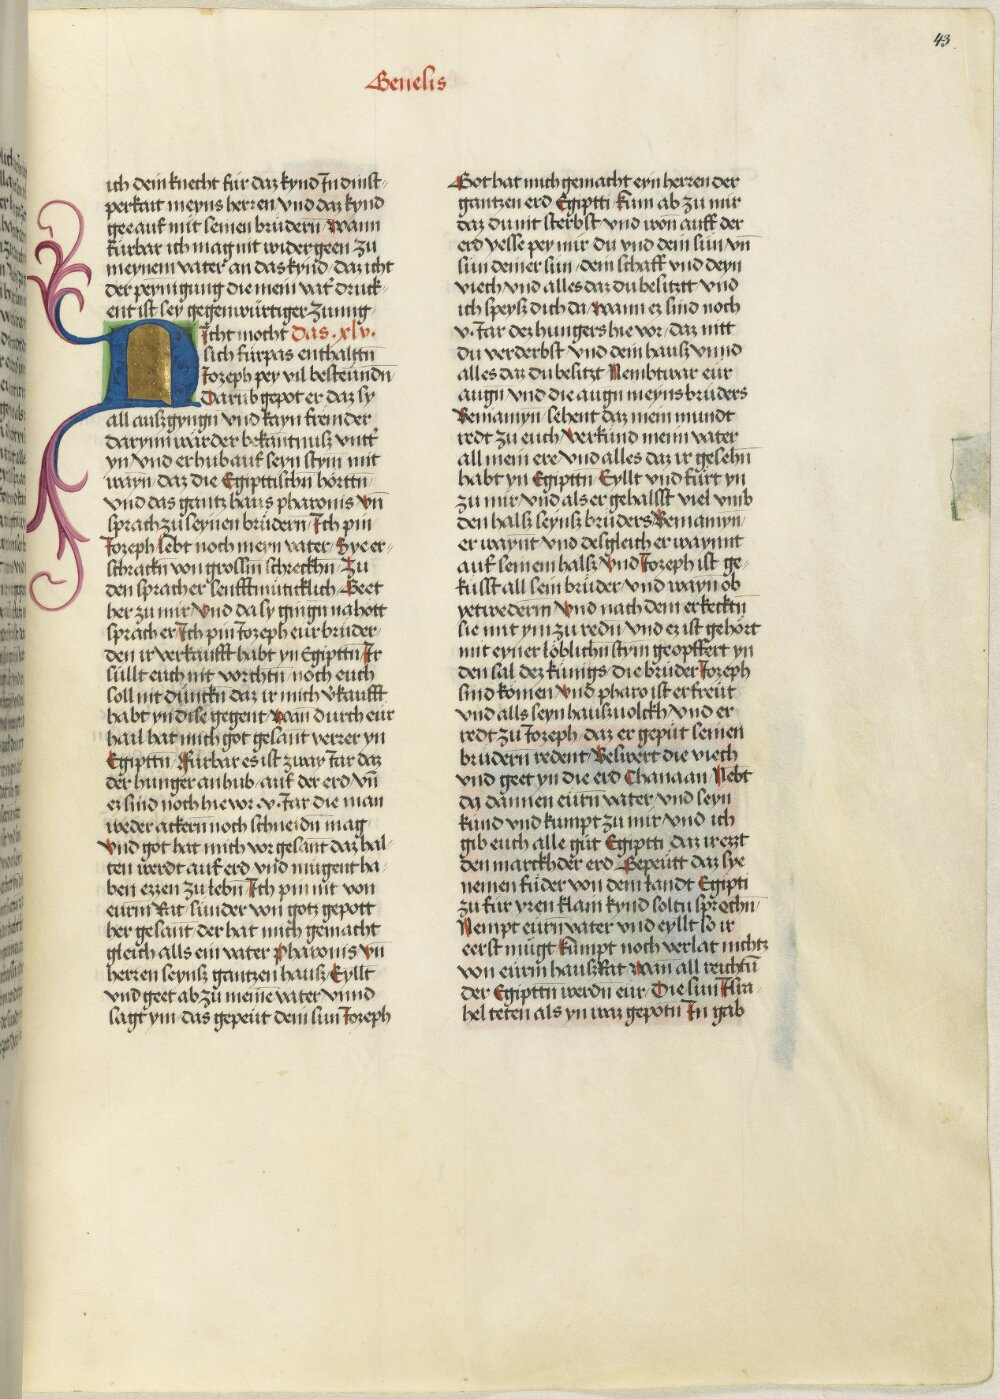 43
Genesis
ich dein knecht für daz kynd In dinst-
perkait meyns herren vnd daz kynd
gee auf mit seinen brüdern wann
fürbar ich mag nit wider geen zu
meynem vater an das kynd daz icht
der peynigung die mein vat̄ druck-
ent ist sey gegenwürtiger zeuug
Nicht mocht das .xlv.
sich fürpas enthalltn̄
Iozeph pey vil besteündn
Darub gepot er daz sy
all auszgyngn vnd kayn fremder
darynn wär der bekantnusz vntt̄
yn vnd er hub auf seyn stym mit
wayn daz die Egipttischn hörttn
vnd das gantz haus pharonis vn̄
sprach zu seynen brüdern Ich pin
Iozeph lebt noch meyn vater Sye er-
schrackn von grossin schreckhn Zu
den sprach er senfftmüticklich Geet
her zu mir vnd da sy gingn nahott
sprach er Ich pin Iozeph eür brüder
den ir verkaufft habt yn Egipttn Ir
süllt euch nit vorchtn noch euch
soll nit dünckn daz ir mich v̄kaufft
habt yn dise gegent wan durch eür
hail hat mich got gesant verrer yn
Egipttn Fürbar es ist zway Iar daz
der hunger anhub auf der erd vn̄
ez sind noch hie vor .v. Iar die man
weder ackern noch schneidn mag
vnd got hat mich vor gesant daz hal-
ten werdt auf erd vnd mügent ha-
ben ezzen zu lebn Ich pin nit von
eürm Rat sünder von gotz gepott
her gesant der hat mich gemacht
gleich alls ein vater Pharonis vn
herren seynsz gantzen hausz Eyllt
vnd geet ab zu meinē vater vnnd
sagt ym das gepeüt dein sun Iozeph
Got hat mich gemacht eyn herren der
gantzen erd Egiptti kum ab zu mir
daz du nit sterbst vnd won auff der
erd yesse pey mir du vnd dein sün vn̄
sün deiner sün dein schaff vnd deyn
viech vnd alles daz du besitztt vnd
ich speysz dich da wann ez sind noch
.v. Iar dez hungers hie vor daz nitt
du verderbst vnd dein hausz vnnd
alles daz du besitzt Nembtwar eür
augn vnd die augn meyns brüders
Bemamyn sehent daz mein mundt
redt zu euch verkünd meim vater
all mein ere vnd alles daz ir gesehn
habt yn Egipttn Eyllt vnd fürt yn
zu mir vnd als er gehalsst viel vmb
den halsz seynsz brüders Bemamyn
er waynt vnd desgleich er waynnt
auf seinem halsz vnd Iozeph ist ge-
küsst all sein brüder vnd wayn ob
yetwederm vnd nach dem erkecktn
sie mit ym zu redn vnd ez ist gehört
mit eyner löblichn stym geopffert yn
den sal dez künigs die brüder Iozeph
sind komen vnd pharo ist erfreüt
vnd alls seyn hauszuolckh vnd er
redt zu Iozeph daz er gepüt seinen
brüdern redent Beswert die viech
vnd geet yn die erd Chanaan Nebt
da dannen eürn vater vnd seyn
künd vnd kumpt zu mir vnd ich
gib euch alle güt Egiptti daz ir ezzt
den marckh der erd Gepeütt daz sye
nemen füder von dem landt Egipti
zu für yren klain kynd soltu sprechn
Nempt eürn vater vnd eyllt so ir
eerst mügt kumpt noch verlat nichtz
von eürm hauszRat wan all reichtū
der Egipttn werdn eür Die sun Isra-
hel teten als yn waz gepotn In gab